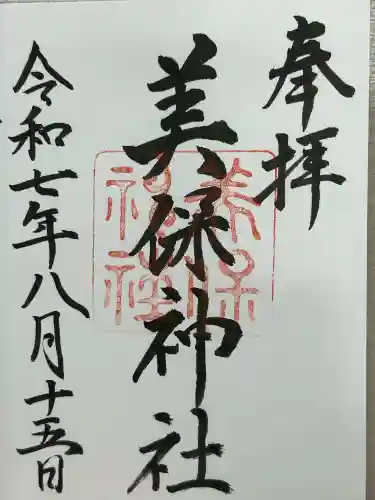 奉拝
美保神社
美保
神社
令和七年八月十五日